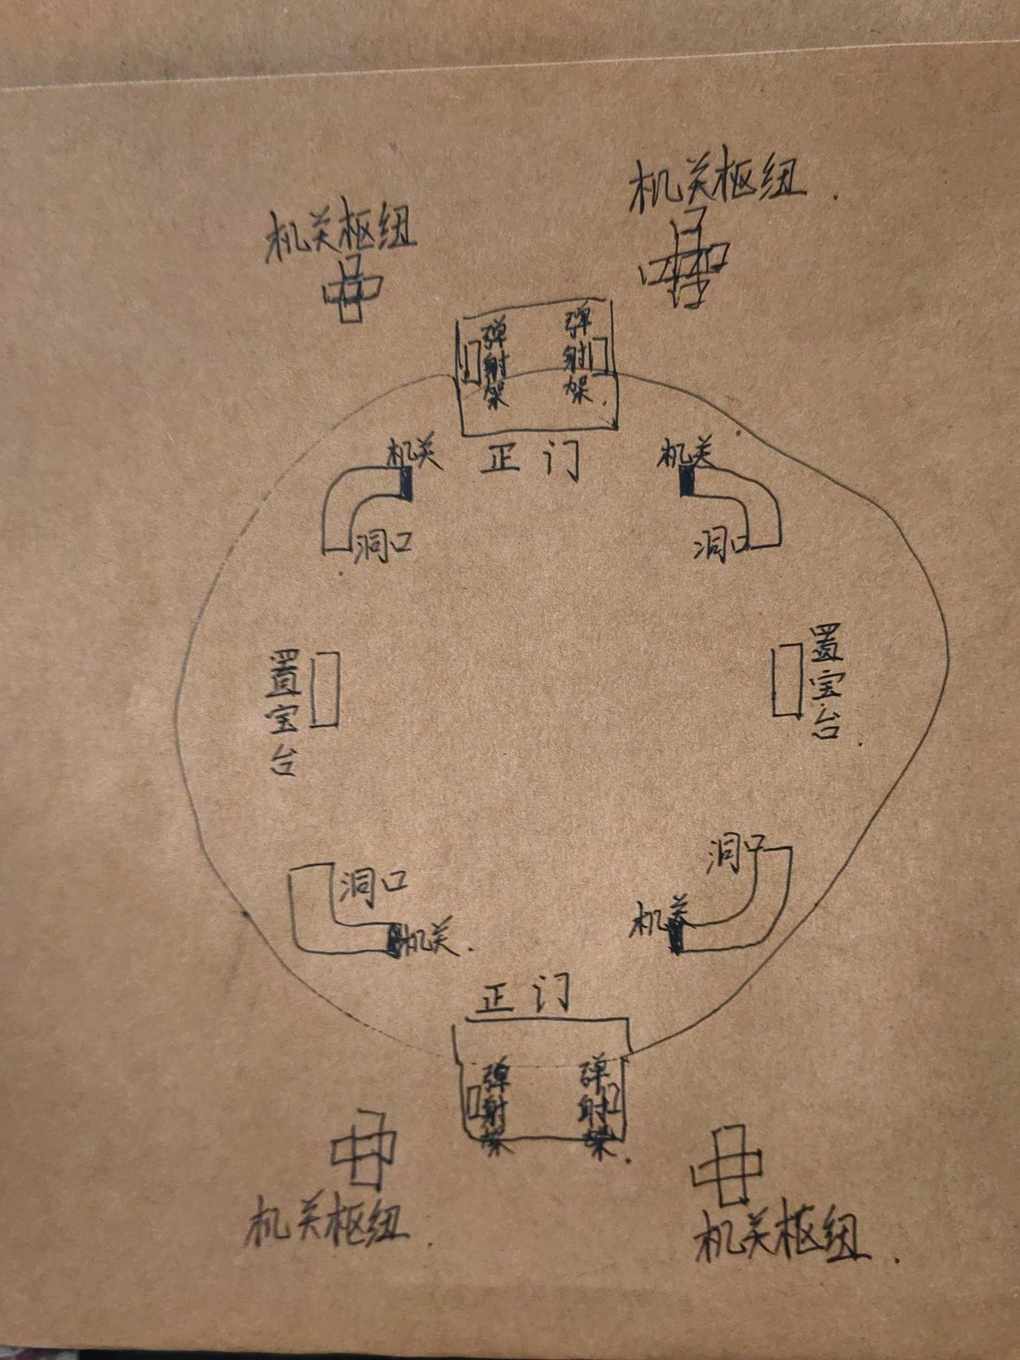 机关枢纽.
机关枢纽
弹射架
弹射架.
机关
正门
机关
洞口
洞口
置宝台
置宝台.
洞口
洞口
机关.
机关
正门
弹射架
弹射架.
机关枢纽.
机关枢纽.